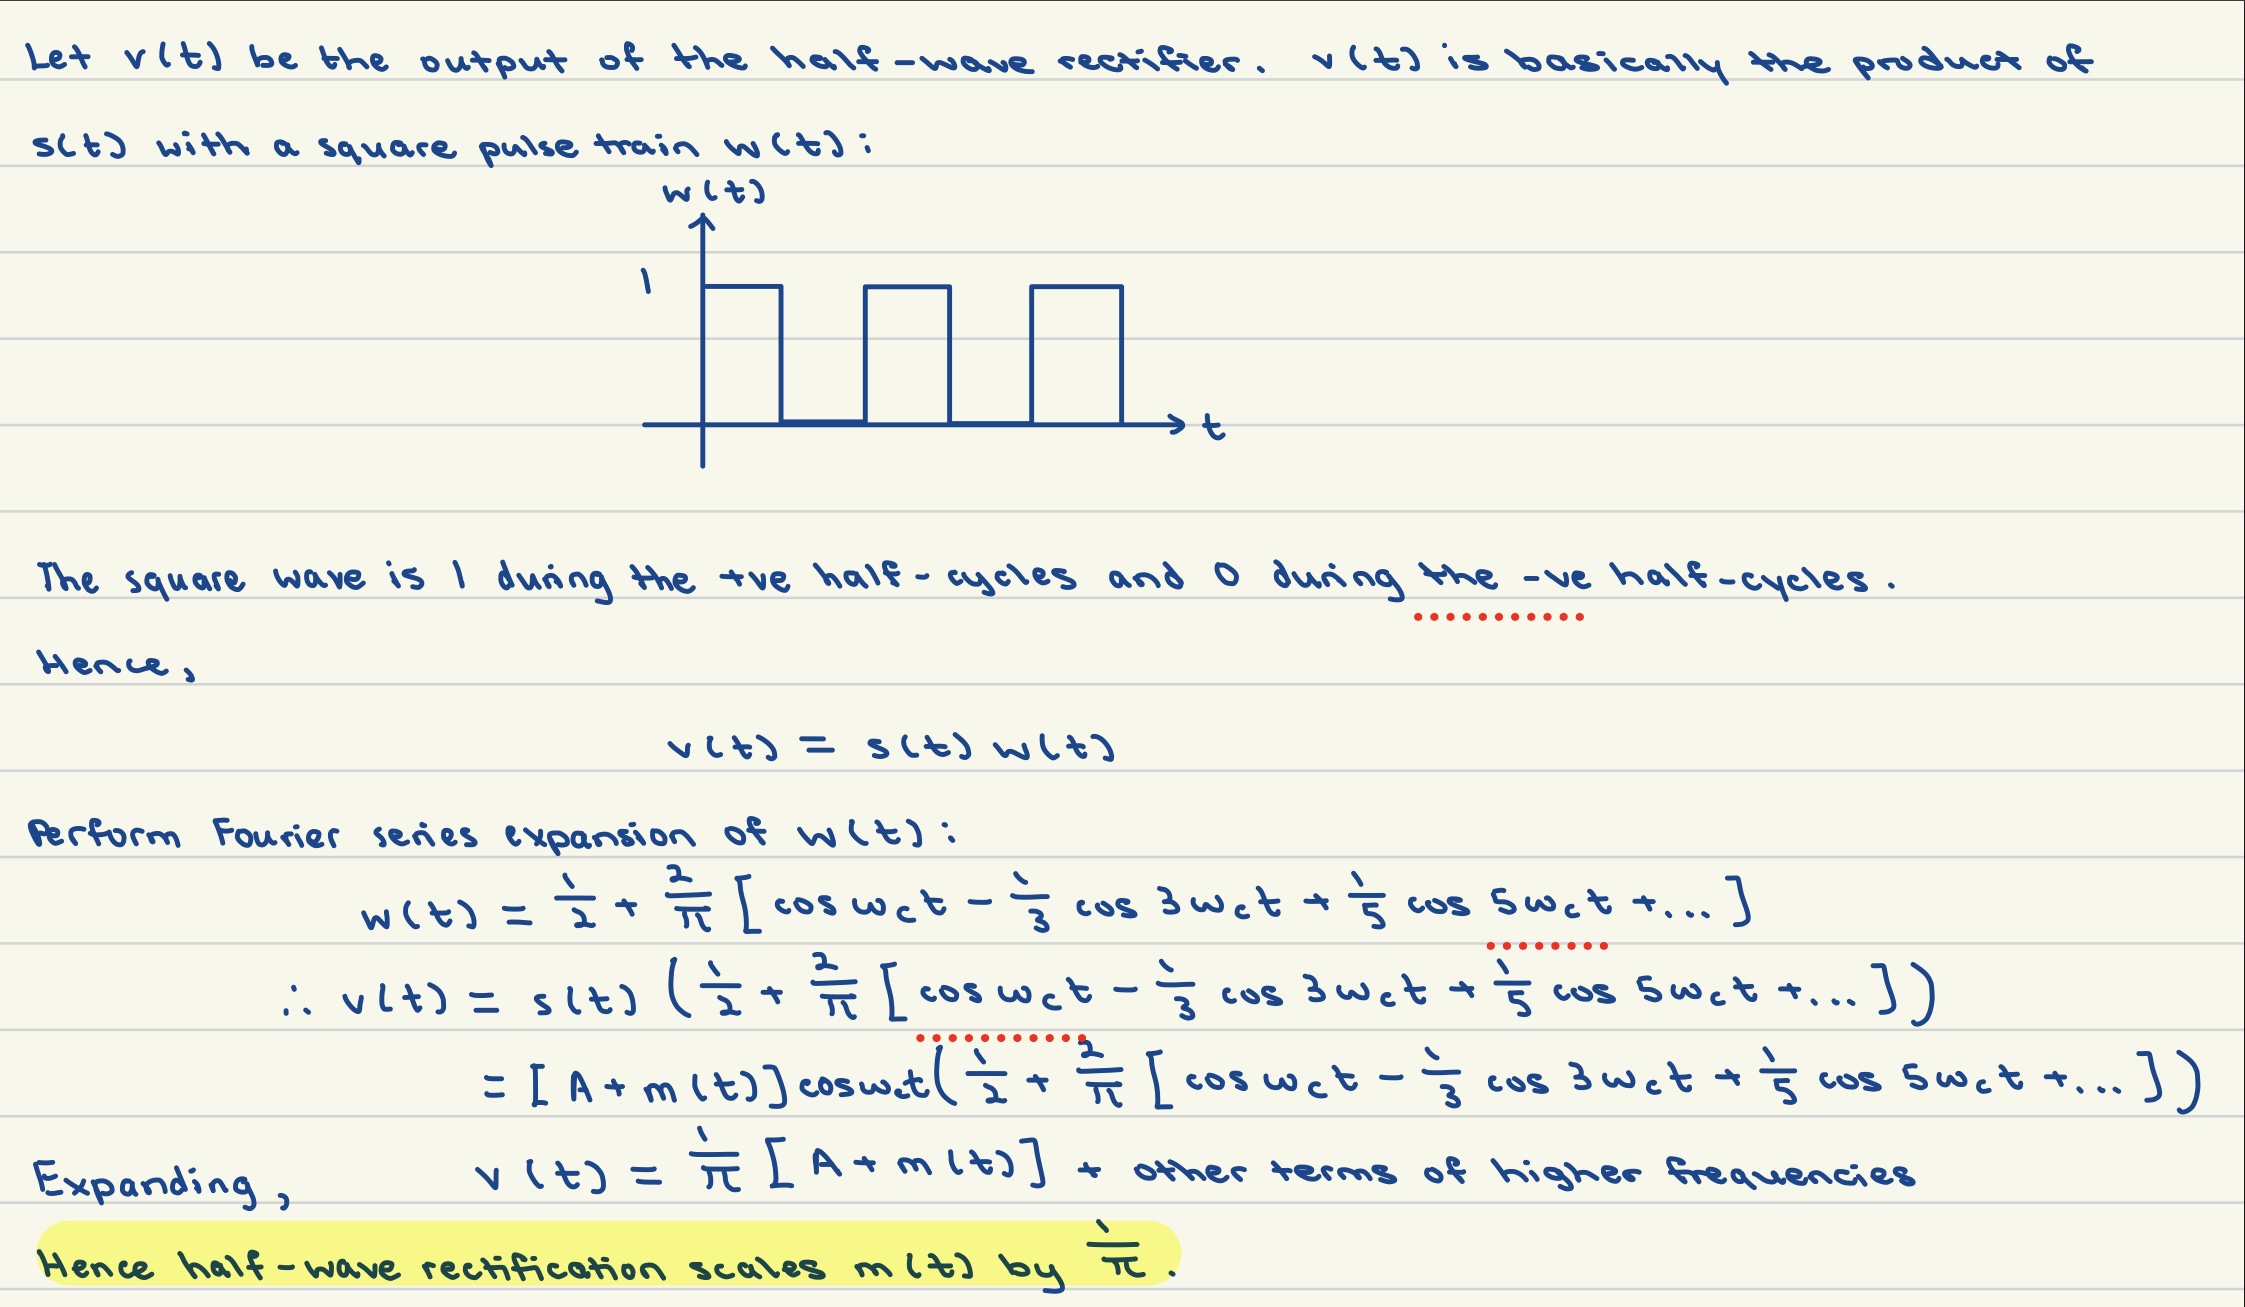 Let v(t) be the output of the half-wave rectifier. v(t) is basically the product of
s(t) with a square pulse train w(t):
w(t)
1
t
The square wave is 1 during the +ve half-cycles and 0 during the -ve half-cycles.
Hence,
v(t) = s(t) w(t)
Perform Fourier series expansion of w(t):
w(t) = 1/2 + 2/π [cos ω_c t - 1/3 cos 3ω_c t + 1/5 cos 5ω_c t +...]
∴ v(t) = s(t) (1/2 + 2/π [cos ω_c t - 1/3 cos 3ω_c t + 1/5 cos 5ω_c t +...])
= [A + m(t)] cos ω_c t (1/2 + 2/π [cos ω_c t - 1/3 cos 3ω_c t + 1/5 cos 5ω_c t +...])
Expanding, v(t) = 1/π [A + m(t)] + other terms of higher frequencies
Hence half-wave rectification scales m(t) by 1/π.